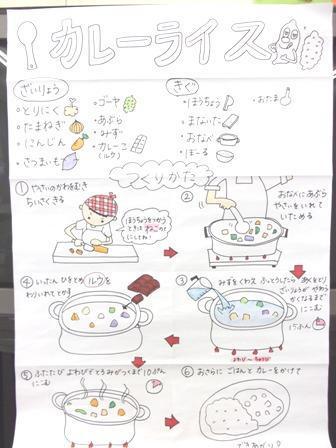 カレーライス
ざいりょう
・とりにく
・たまねぎ
・にんじん
・さつまいも
・ゴーヤ
・あぶら
・みず
・カレーこ
(ルウ)
きぐ
・ほうちょう
・まないた
・おなべ
・ぼーる
・おたま
つくりかた
① やさいのかわをむき
ちいさくきる
ほうちょうをつかう
ときは ねこの
てにしてね!
② おなべにあぶら
やさいをいれて
いためる
③ みずをくわえ ふっとうしたら あくをとり
ざいりょうが やわら
かくなるまで
にこむ
15ふん
よわび〜ちゅうび
④ いったん ひをとめ ルウを
わりいれて とかす
⑤ ふたたび よわびでとろみがつくまで10ぷん
にこむ
⑥ おさらに ごはんと カレーをかけて
できあがり